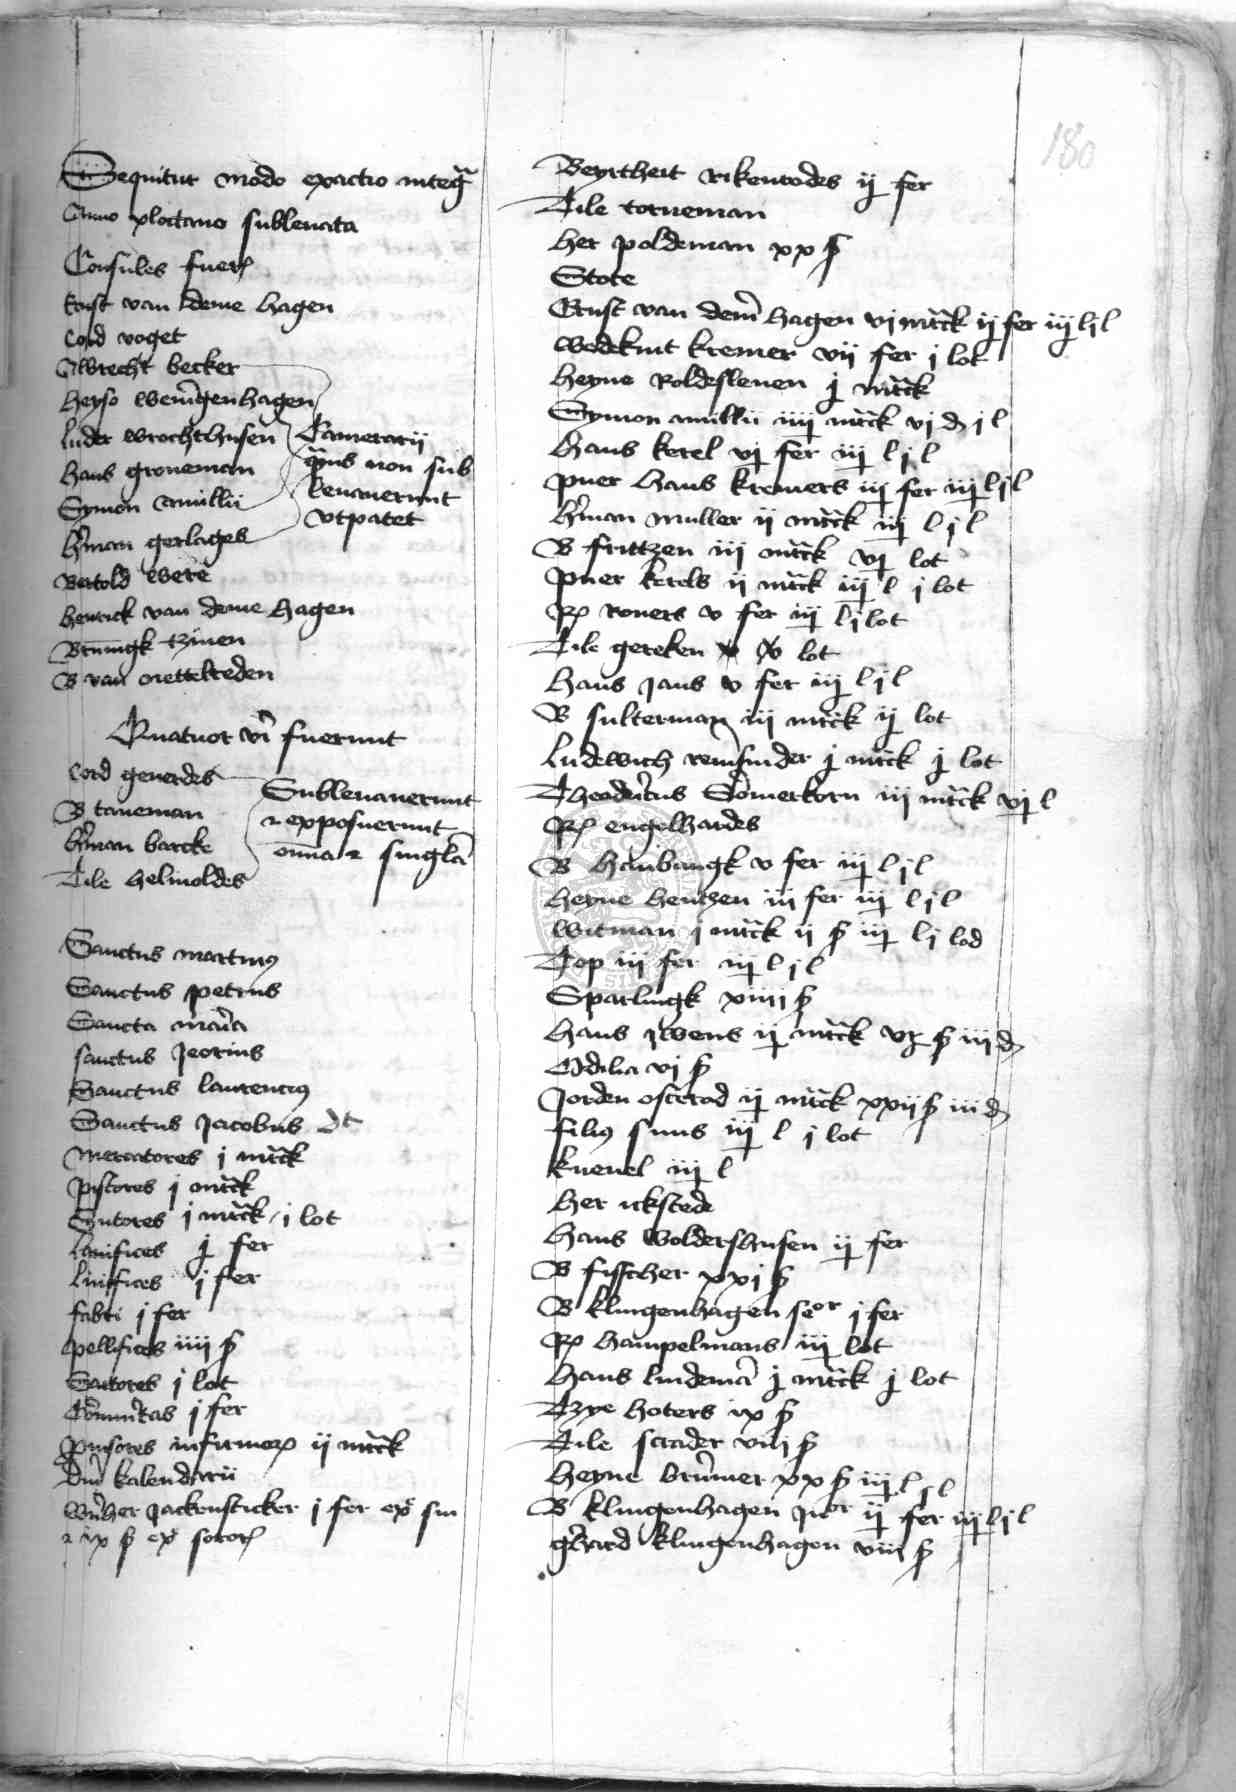 180
Sequitur modo exactio integra
Anno xloctavo sublevata
Consules fuer
Ernst van deme hagen
Cord voget
Albrecht becker
heyso weningenhagen
luder wrochthusen
hans groneman
Symon amilii
herman gerlages
Bertold were
henrick van deme hagen
Brunigk tzinen
B van mettelreden
Camerarij
quis non sub
levaverunt
vt patet
Quatuor viri fuerunt
Cord geverdes
B taveman
herman barcke
Tile helmoldes
Sublevaverunt
et exposuerunt
omnia et singula
Sanctus martinus
Sanctus petrus
Sancta maria
sanctus Jeorius
Sanctus laurencius
Sanctus Jacobus dt
Mercatores j marck
pistores j marck
Sutores j marck j lot
lanifices j fer
linifices j fer
fabri j fer
pellifices iiij ß
Sartores j lot
Communitas j fer
provisores infirmor ij marck
Dni kalendarii
Wernher Jackensticker j fer ex sui
et ix ß ex soror
Beyrtheit rikenrodes ij fer
Tile torneman
her poldeman xx ß
Stote
Ernst van deme hagen vj marck ij fer iij l j l
wedekint kremer vij fer j lot
heyne Roldesleven j marck
Symon amilii iiij marck vj d j l
hans ketel vj fer iij l j l
puer hans kremers iij fer iij l j l
herman muller ij marck iij l j l
B frittzen iij marck vj lot
puer ketels ij marck iij l j lot
Rel roners v fer iij l j lot
Tile gereken v lot
hans Jans v fer iij l j l
B sulterman iij marck ij lot
ludewich remsnider j marck j lot
Theodericus Somerkorn iij marck vj l
Rel engelhardes
B hanbangk v fer iij l j l
heyne hentzen iij fer iij l j l
witman j marck ij ß iij l j lod
Top iij fer iij l j l
Sparlingk xiiij ß
hans Iwens ij marck ß iij d
Odilia vj ß
Jorden osterod ij marck xxij ß iij d
filius suus iij l j lot
knevel iij l
her uckstede
hans woldershusen ij fer
B fisscher xxj ß
B klingenhagen seor j fer
Rel hampelmans iij lot
hans lindeman j marck j lot
Tzye hoters ix ß
Tile scrader viij ß
heyne brunner xx ß iij l j l
B klingenhagen Jnor ij fer iij l j l
gherard klingenhagen viij ß